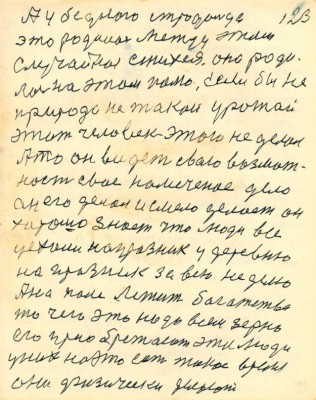 А у бедного стродающе 123
это родилось между этим
случайная стихея. оно роди-
лось на этом поле, если бы не
природа не такой урожай
этот человек этого не делал
А то он видет свою возмож-
ность свое намеченое дело
он его делал и смело делает он
хорошо знает что люди все
уехали на празник у деревню
на празник за всю неделю
А на поле Летит богатства
то чего это надо всем зерно
его приобретают эти люди
у них на это есть такое время
они физически